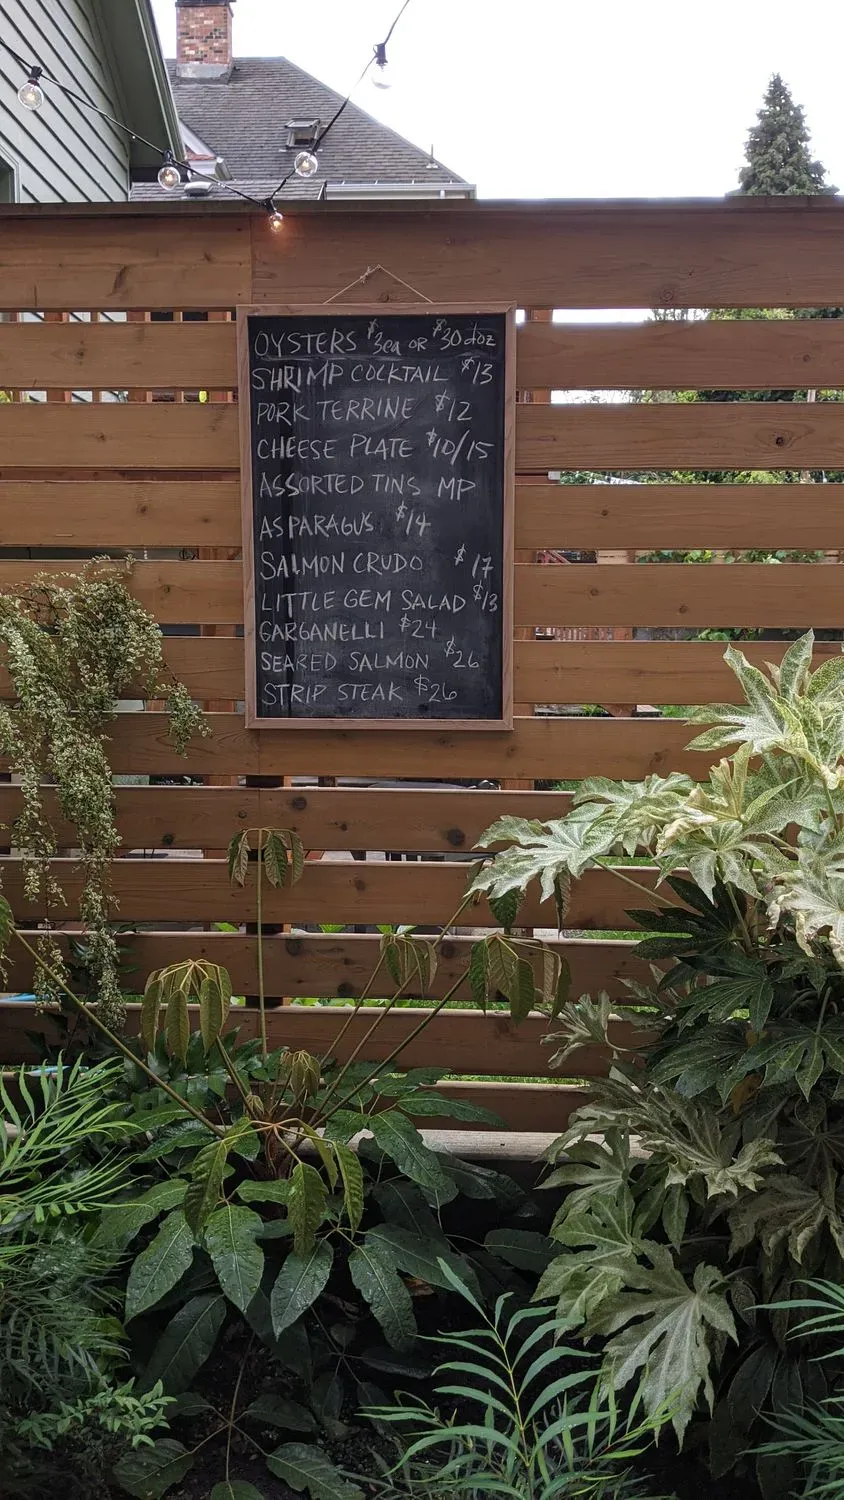 OYSTERS $3ea OR $30 doz
SHRIMP COCKTAIL $13
PORK TERRINE $12
CHEESE PLATE $10/15
ASSORTED TINS MP
ASPARAGUS $14
SALMON CRUDO $17
LITTLE GEM SALAD $13
GARGANELLI $24
SEARED SALMON $26
STRIP STEAK $26